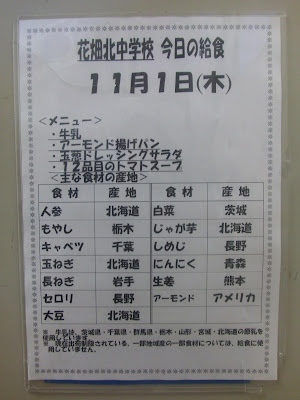 花畑北中学校 今日の給食
11月1日(木)
<メニュー>
・牛乳
・アーモンド揚げパン
・玉葱ドレッシングサラダ
・12品目のトマトスープ
<主な食材の産地>
食材 産地 食材 産地
人参 北海道 白菜 茨城
もやし 栃木 じゃが芋 北海道
キャベツ 千葉 しめじ 長野
玉ねぎ 北海道 にんにく 青森
長ねぎ 岩手 生姜 熊本
セロリ 長野 アーモンド アメリカ
大豆 北海道
※ 牛乳は、茨城県・千葉県・群馬県・栃木・山形・宮城・北海道の原乳を
使用しています。
※ 現在出荷制限されている、一部地域産の一部食材については、給食に使
用していません。